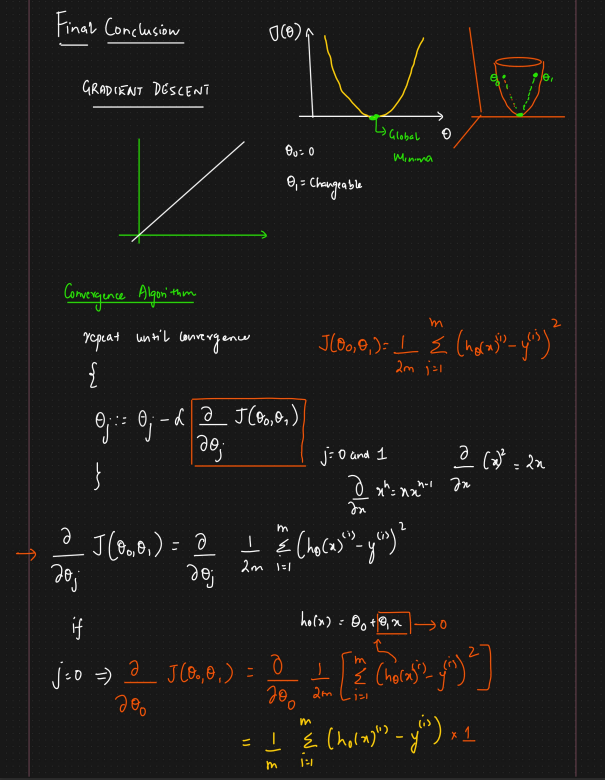 Final Conclusion
GRADIENT DESCENT
J(θ)
θ
Global
Minima
θ₀ = 0
θ₁ = Changeable
θ₀ θ₁
Convergence Algorithm
repeat until convergence
{
θj := θj - α ∂/∂θj J(θ₀,θ₁)
}
J(θ₀,θ₁) = 1/2m Σ_{i=1}^{m} (hθ(x)^(i) - y^(i))²
j = 0 and 1
∂/∂x (x)² = 2x
∂/∂x xⁿ = nxⁿ⁻¹
→ ∂/∂θj J(θ₀,θ₁) = ∂/∂θj 1/2m Σ_{i=1}^{m} (hθ(x)^(i) - y^(i))²
if
hθ(x) = θ₀ + θ₁x → 0
j=0 ⇒ ∂/∂θ₀ J(θ₀,θ₁) = ∂/∂θ₀ 1/2m [Σ_{i=1}^{m} (hθ(x)^(i) - y^(i))²]
= 1/m Σ_{i=1}^{m} (hθ(x)^(i) - y^(i)) × 1